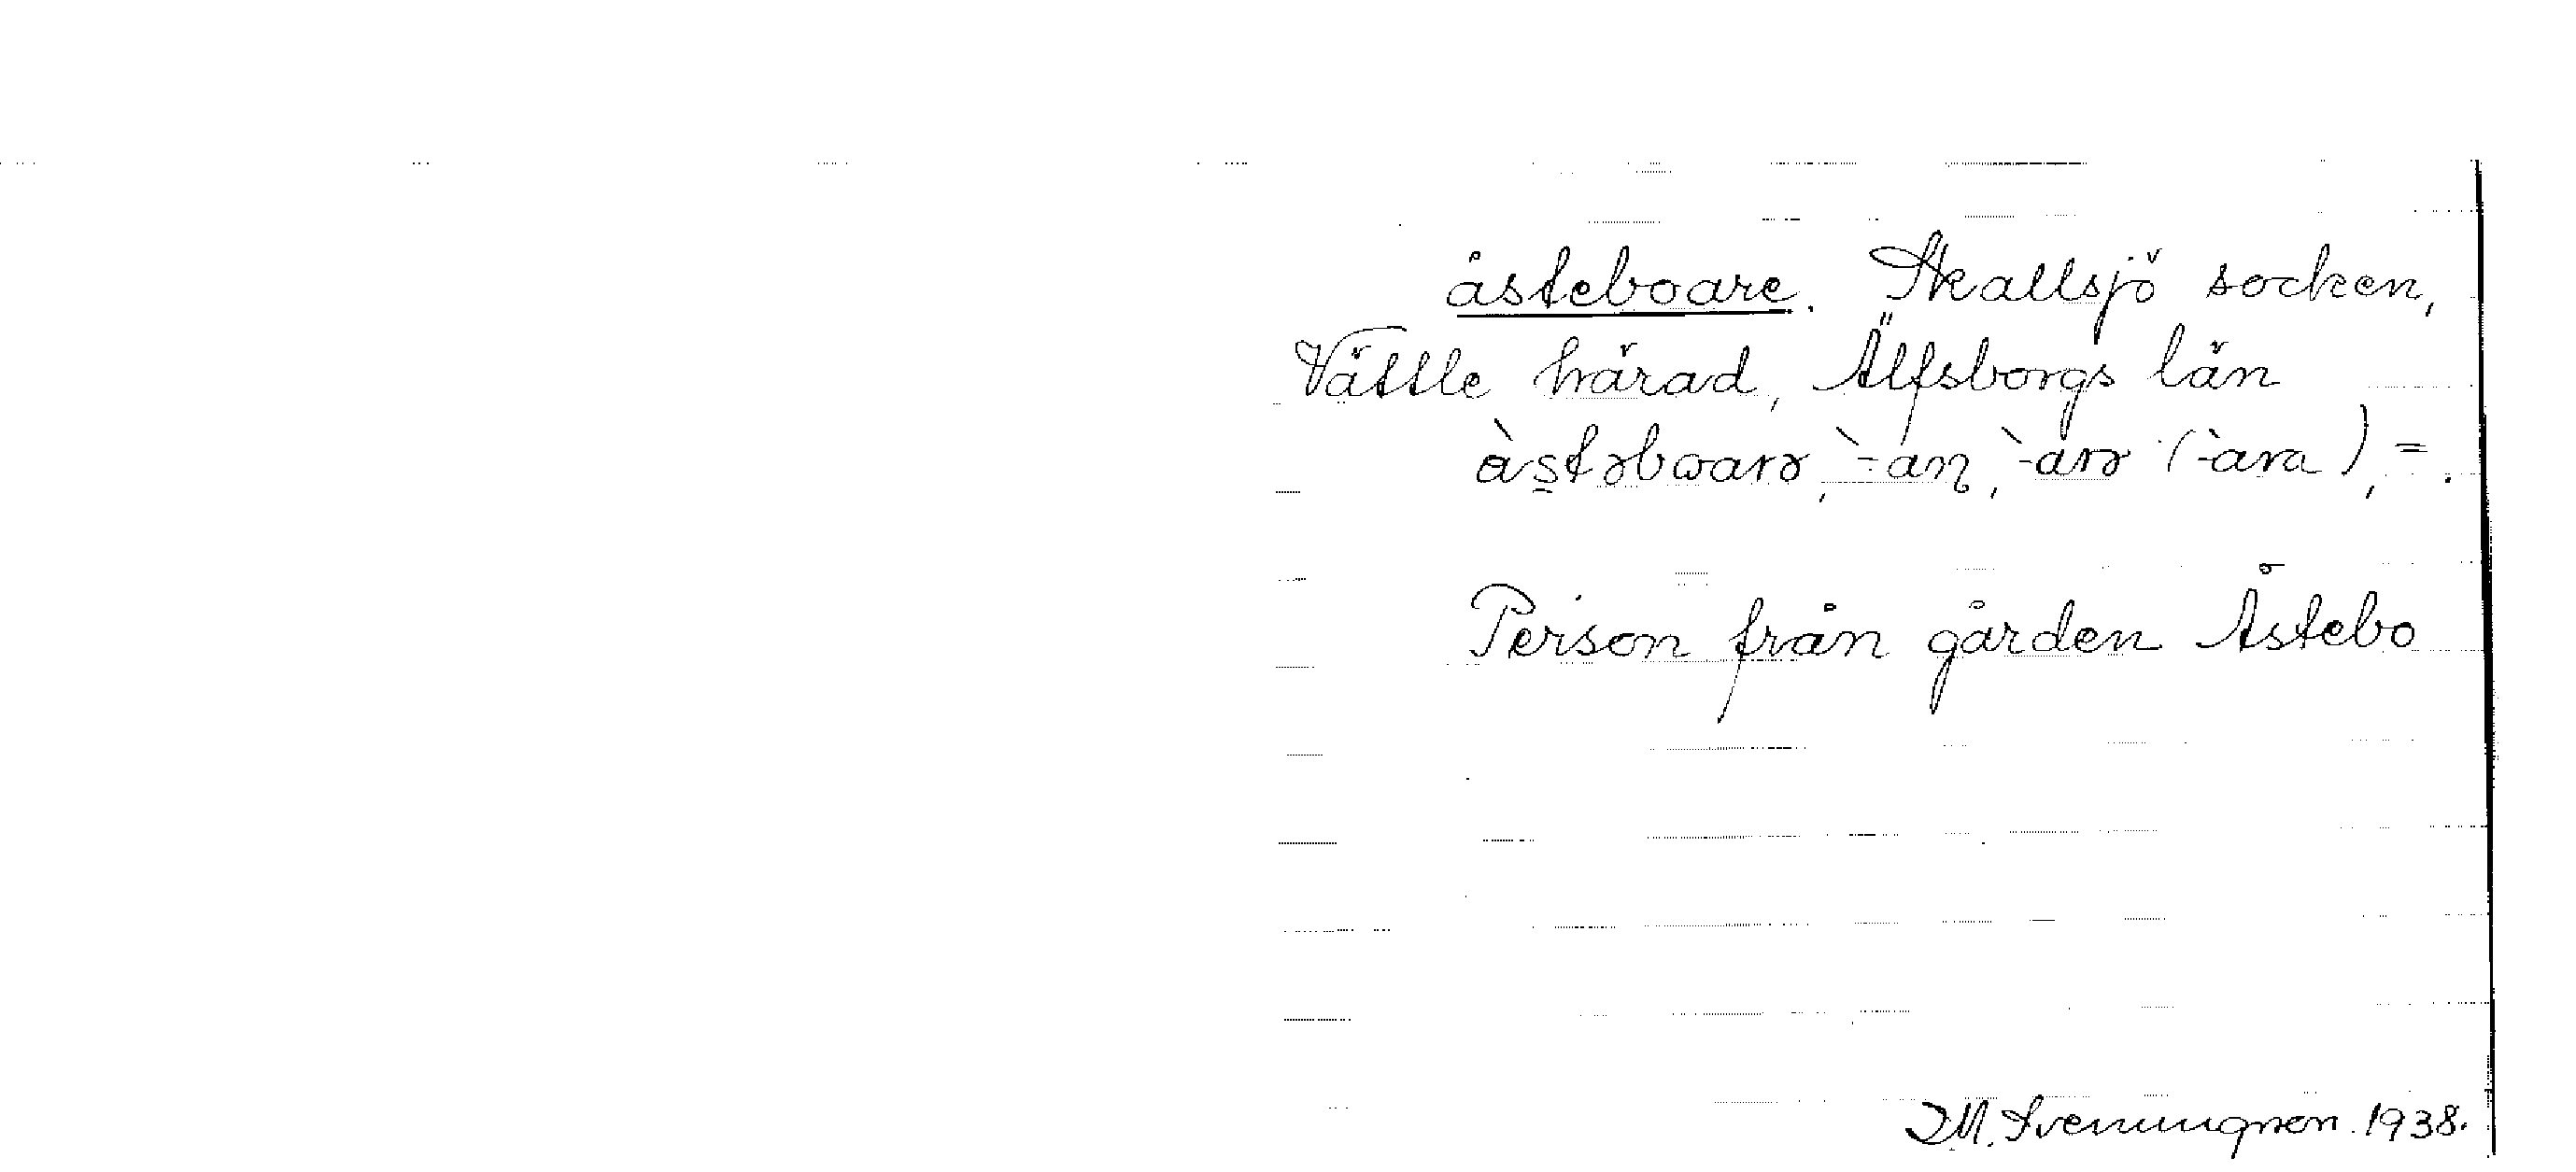 åsteboare. Skallsjö socken,
Vättle härad, Älfsborgs län
àstəbωarə, ̀-an, ̀-arə (̀-ara), =.
Person från gården Åstebo
D.M. Sveningson. 1938.